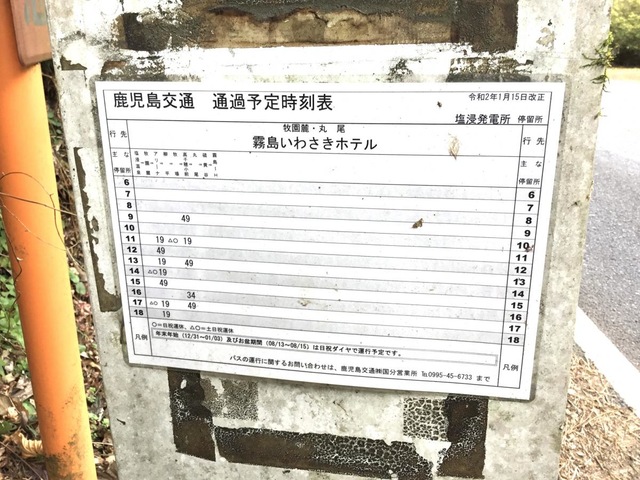 鹿児島交通 通過予定時刻表
令和2年1月15日改正
塩浸発電所 停留所
行先 牧園麓・丸尾 行先
霧島いわさきホテル
主な停留所 主な停留所
6 6
7 7
8 8
9 49 9
10 10
11 19 △○ 19 11
12 49 12
13 19 49 13
14 △○19 14
15 49 15
16 34 16
17 △○ 19 49 17
18 19 18
凡例 ○=日祝運休、△○=土日祝運休 凡例
年末年始(12/31~01/03)及びお盆期間(08/13~08/15)は日祝ダイヤで運行予定です。
バスの運行に関するお問い合わせは、鹿児島交通㈱国分営業所 ℡0995-45-6733 まで